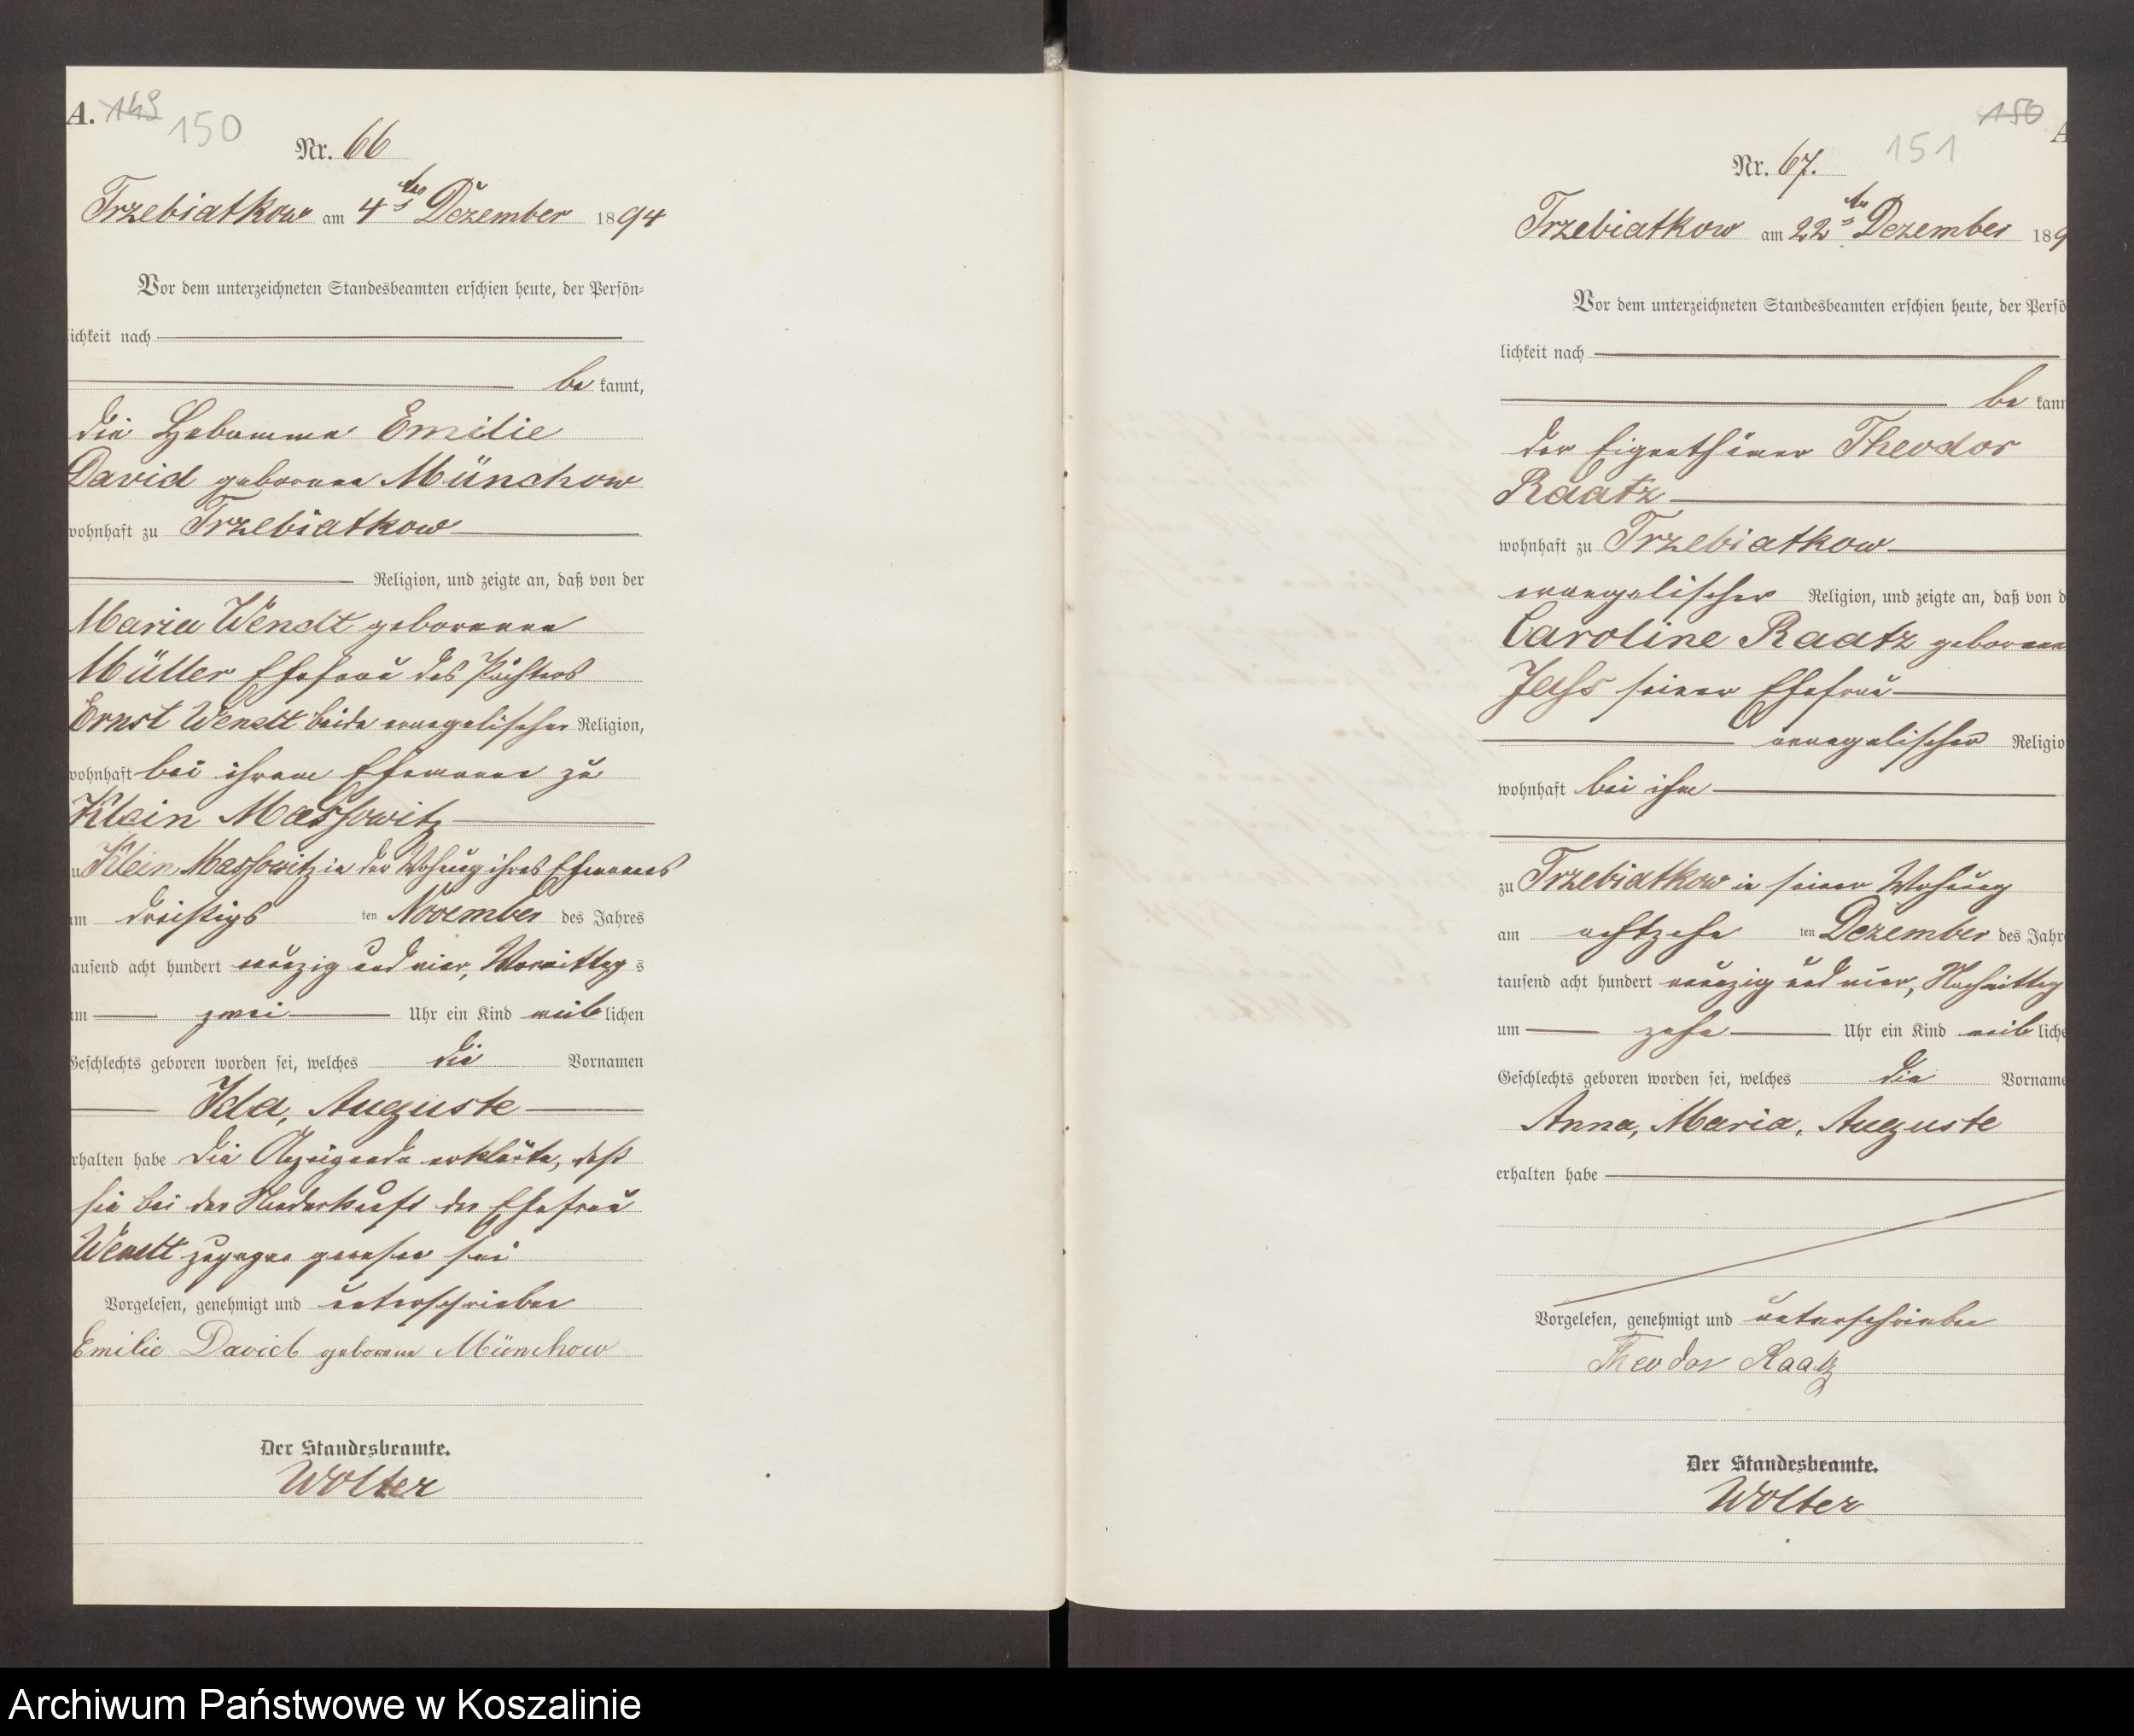 A. 149 150
Nr. 66
Trzebiatkow am 4ten Dezember 1894
Vor dem unterzeichneten Standesbeamten erschien heute, der Persön-
lichkeit nach
be kannt,
die Hebamme Emilie
David geborene Münchow
wohnhaft zu Trzebiatkow
Religion, und zeigte an, daß von der
Maria Wendt geborenen
Müller Ehefrau des Pächters
Ernst Wendt beide evangelischer Religion,
wohnhaft bei ihrem Ehemanne zu
Klein Massowitz
zu Klein Massowitz in der Wohnung ihres Ehemannes
am dreißigs ten November des Jahres
tausend acht hundert neunzig und vier, Vormittag s
um zwei Uhr ein Kind weib lichen
Geschlechts geboren worden sei, welches die Vornamen
Ida, Auguste
erhalten habe die Anzeigende erklärte, daß
sie bei der Niederkunft der Ehefrau
Wendt zugegen gewesen sei
Vorgelesen, genehmigt und unterschrieben
Emilie David geborene Münchow
Der Standesbeamte.
Wolter
150 A
Nr. 67. 151
Trzebiatkow am 22ten Dezember 189
Vor dem unterzeichneten Standesbeamten erschien heute, der Persö
lichkeit nach
be kann
der Eigenthümer Theodor
Raatz
wohnhaft zu Trzebiatkow
evangelischer Religion, und zeigte an, daß von d
Caroline Raatz geborenen
Jass seiner Ehefrau
evangelischer Religio
wohnhaft bei ihm
zu Trzebiatkow in seiner Wohnung
am achtzehn ten Dezember des Jahr
tausend acht hundert neunzig und vier, Nachmittag
um zehn Uhr ein Kind weib liche
Geschlechts geboren worden sei, welches die Vorname
Anna, Maria, Auguste
erhalten habe
Vorgelesen, genehmigt und unterschrieben
Theodor Raatz
Der Standesbeamte.
Wolter
Archiwum Państwowe w Koszalinie